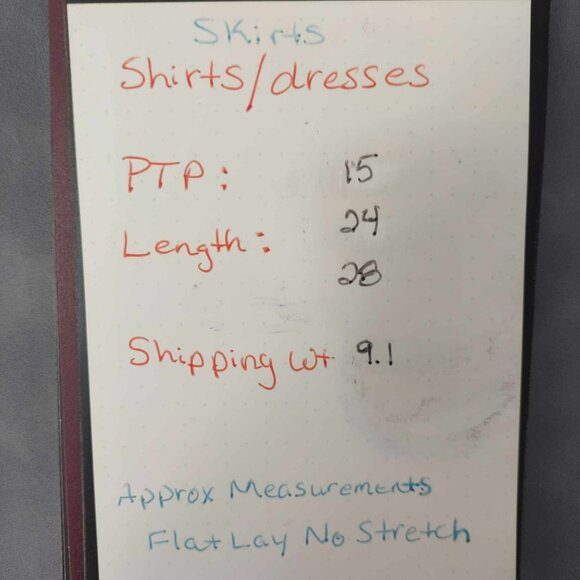 Skirts
Shirts/dresses
PTP: 15
24
Length:
28
Shipping Wt 9.1
Approx Measurements
Flat Lay No Stretch